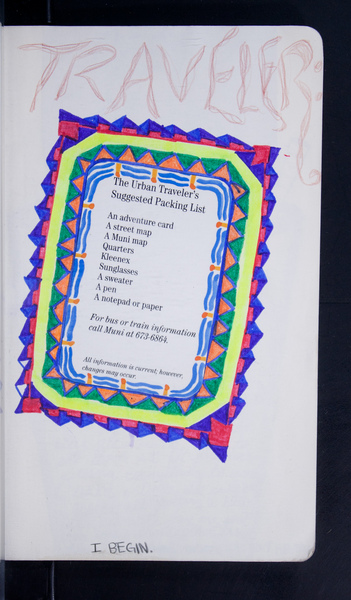 TRAVELER:
The Urban Traveler's
Suggested Packing List
An adventure card
A street map
A Muni map
Quarters
Kleenex
Sunglasses
A sweater
A pen
A notepad or paper
For bus or train information
call Muni at 673-6864.
All information is current; however,
changes may occur.
I BEGIN.